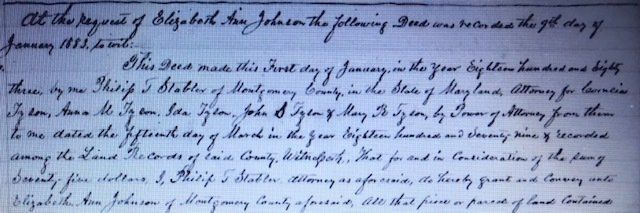 At the request of Elizabeth Ann Johnson the following Deed was recorded the 9th day of
January 1883, to wit:-
This Deed made this First day of January, in the Year Eighteen hundred and Eighty
three, by me Philip T Stabler of Montgomery County, in the State of Maryland, Attorney for
Tyson, Anna M Tyson, Ida Tyson, John S Tyson & Mary R Tyson, by Power of Attorney from them
to me dated the fifteenth day of March in the Year Eighteen hundred and Seventy nine & recorded
among the Land Records of said County, Witnesseth, That for and in Consideration of the sum of
Seventy five dollars, I, Philip T Stabler attorney as aforesaid, do hereby grant and Convey unto
Elizabeth Ann Johnson of Montgomery County aforesaid, all that piece or parcel of land Contained